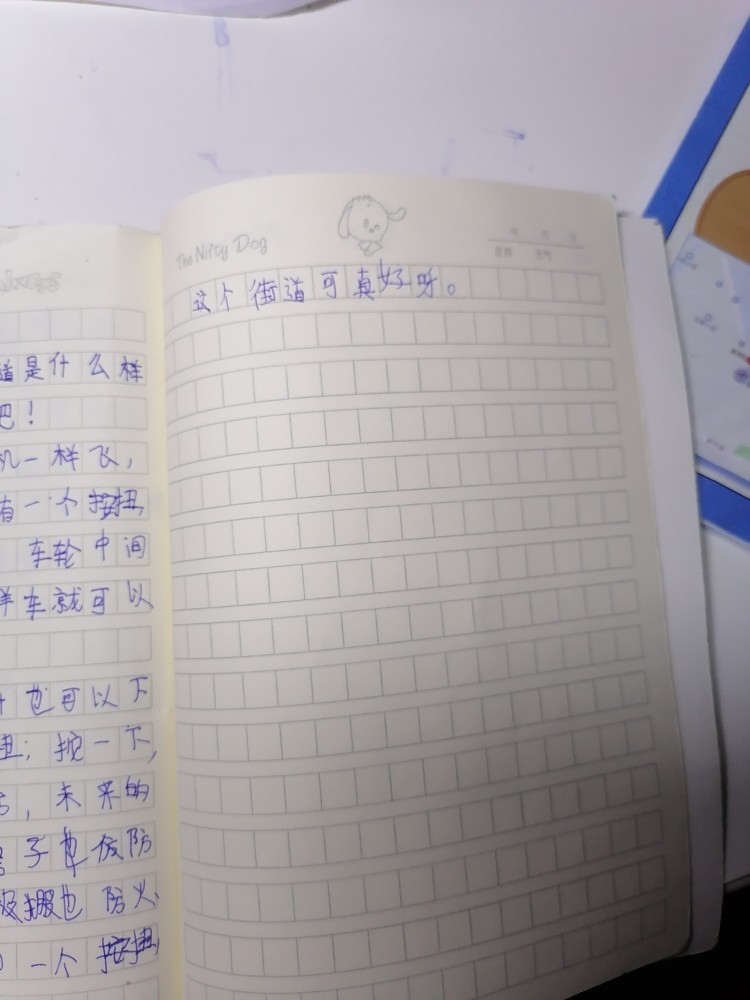 道是什么样
吧！
机一样飞，
有一个按扭，
车轮中间
样车就可以
也可以下
按一下，
，未来的
子也仿防
也防火，
一个按扭，
The Nifty Dog
星期 天气
这个街道可真好呀。